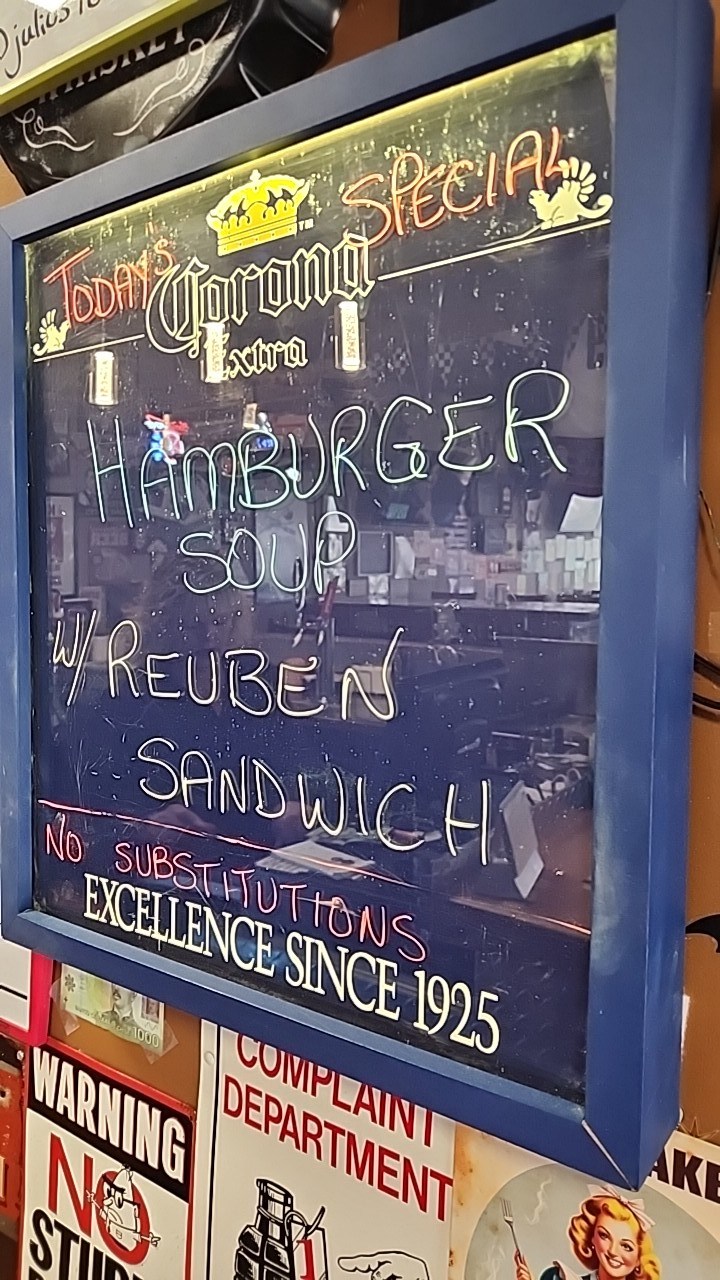 WHISKEY
TODAY'S SPECIAL
Corona
Extra
HAMBURGER
SOUP
W/ REUBEN
SANDWICH
NO SUBSTITUTIONS
EXCELLENCE SINCE 1925
1000
WARNING
NO
COMPLAINT
DEPARTMENT